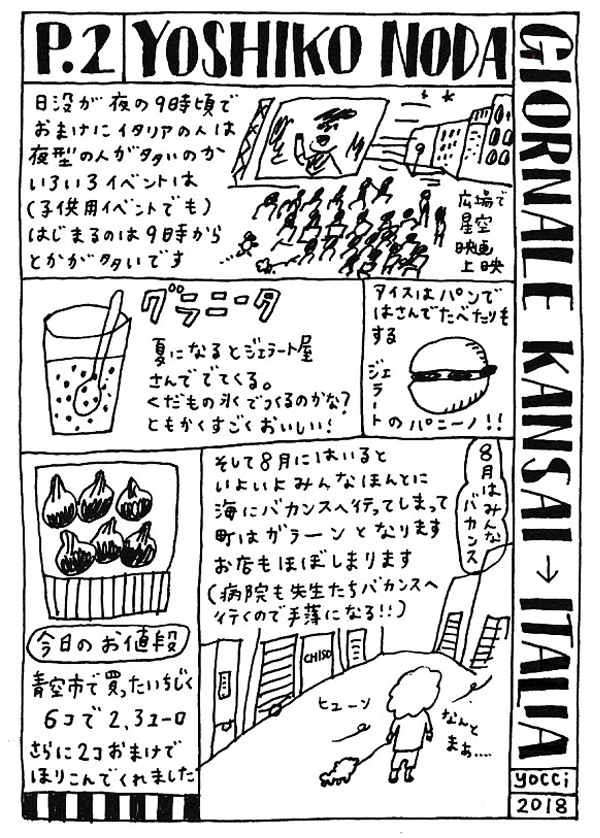 P.2 YOSHIKO NODA
GIORNALE KANSAI → ITALIA
日没が夜の9時頃で
おまけにイタリアの人は
夜型の人が多いのか
いろいろイベントは
(子供用イベントでも)
はじまるのは9時から
とかが多いです
広場で
星空
映画
上映
グラニータ
夏になるとジェラート屋
さんででてくる。
くだもの氷でつくるのかな?
ともかくすごくおいしい!
アイスはパンで
はさんでたべたりも
する
ジェラートのパニーノ!!
そして8月にはいると
いよいよみんなほんとに
海にバカンスへ行ってしまって
町はガラーンとなります
お店もほぼしまります
(病院も先生たちバカンスへ
行くので手薄になる!!)
8月はみんな
バカンス
CHISO
ヒューン
なんと
まぁ....
今日のお値段
青空市で買ったいちじく
6コで2,3ユーロ
さらに2コおまけで
ほりこんでくれました
yocci
2018